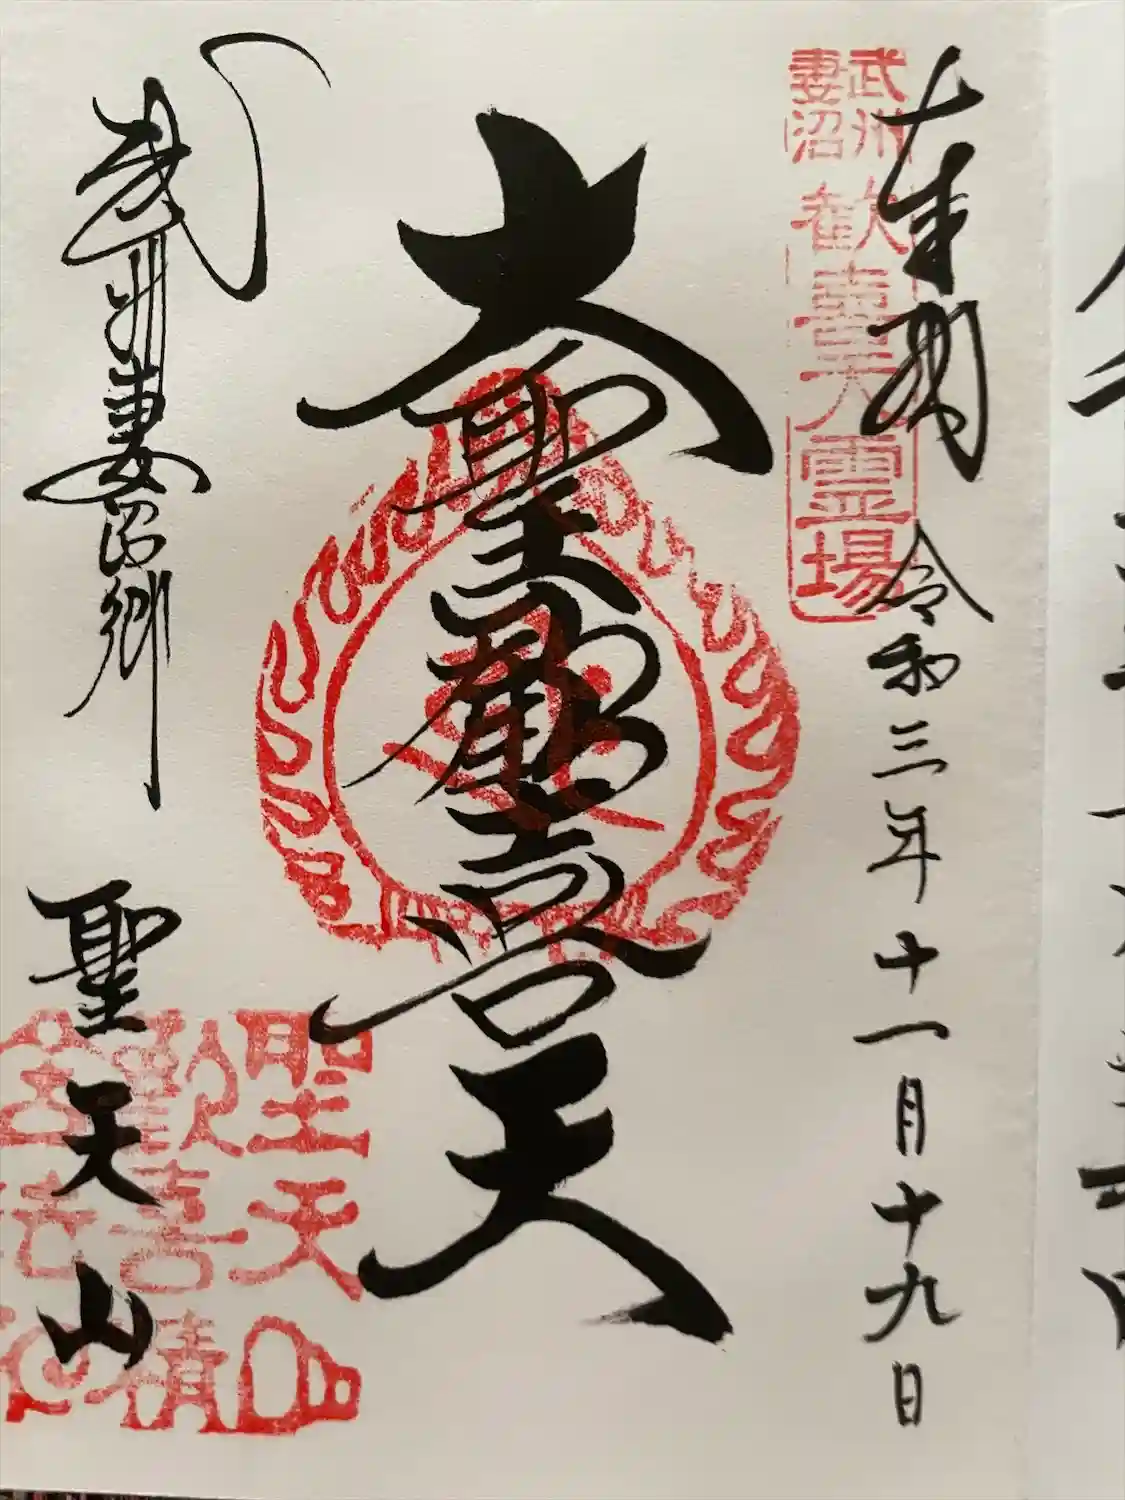 奉拝 令和三年十一月十九日
武州
妻沼
歓喜天霊場
大聖歓喜天
武州妻沼郷
聖天山
聖天山
歓喜